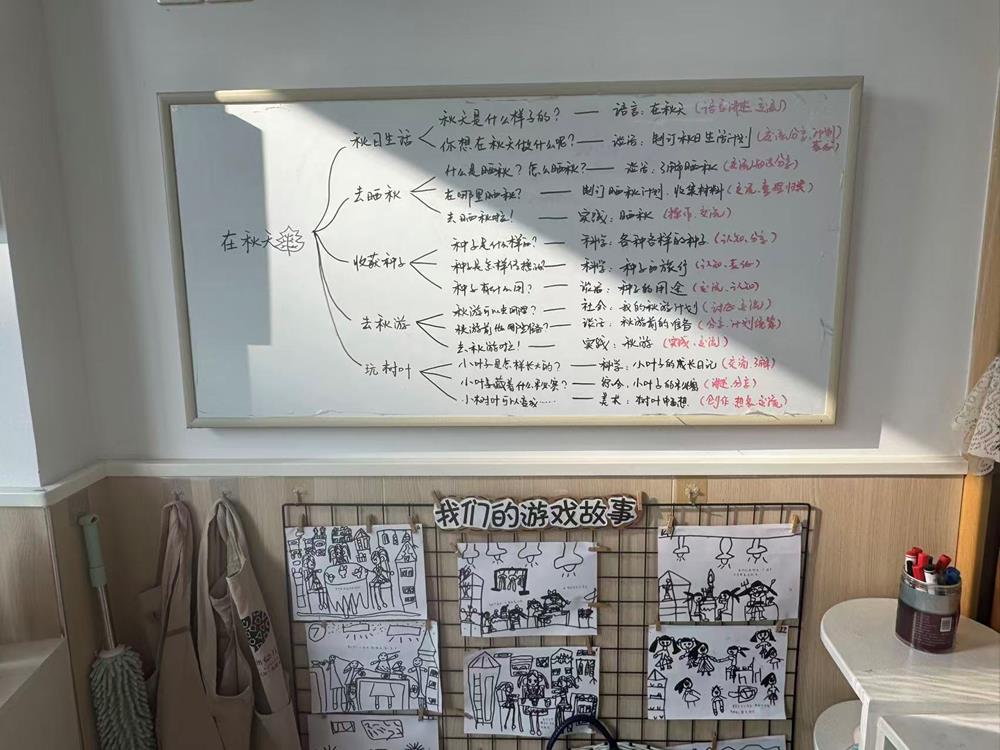 在秋天
秋日生活
秋天是什么样子的？ — 语言：在秋天（语言讲述、交流）
你想在秋天做什么呢？ — 谈话：制订秋日生活计划（交流、分享、计划
去晒秋
什么是晒秋？怎么晒秋？ — 谈话：了解晒秋（交流、知识分享）
在哪里晒秋？ — 制订晒秋计划、收集材料（交流、整理归类）
去晒秋啦！ — 实践：晒秋（操作、交流）
收获种子
种子是什么样的？ — 科学：各种各样的种子（认知、分享）
种子是怎样传播的？ — 科学：种子的旅行（认知、表征）
种子有什么用？ — 谈话：种子的用途（交流、认知）
去秋游
秋游可以去哪里？ — 社会：我的秋游计划（讨论、交流）
秋游前做哪些准备？ — 谈话：秋游前的准备（分享、计划统筹）
去秋游啦！ — 实践：秋游（实践、交流）
玩树叶
小叶子是怎样长大的？ — 科学：小叶子的成长日记（交流、了解）
小叶子藏着什么秘密？ — 综合：小叶子的秘密（讲述、分享）
小树叶可以变成…… — 美术：树叶畅想（创作、想象、交流）
我们的游戏故事
7